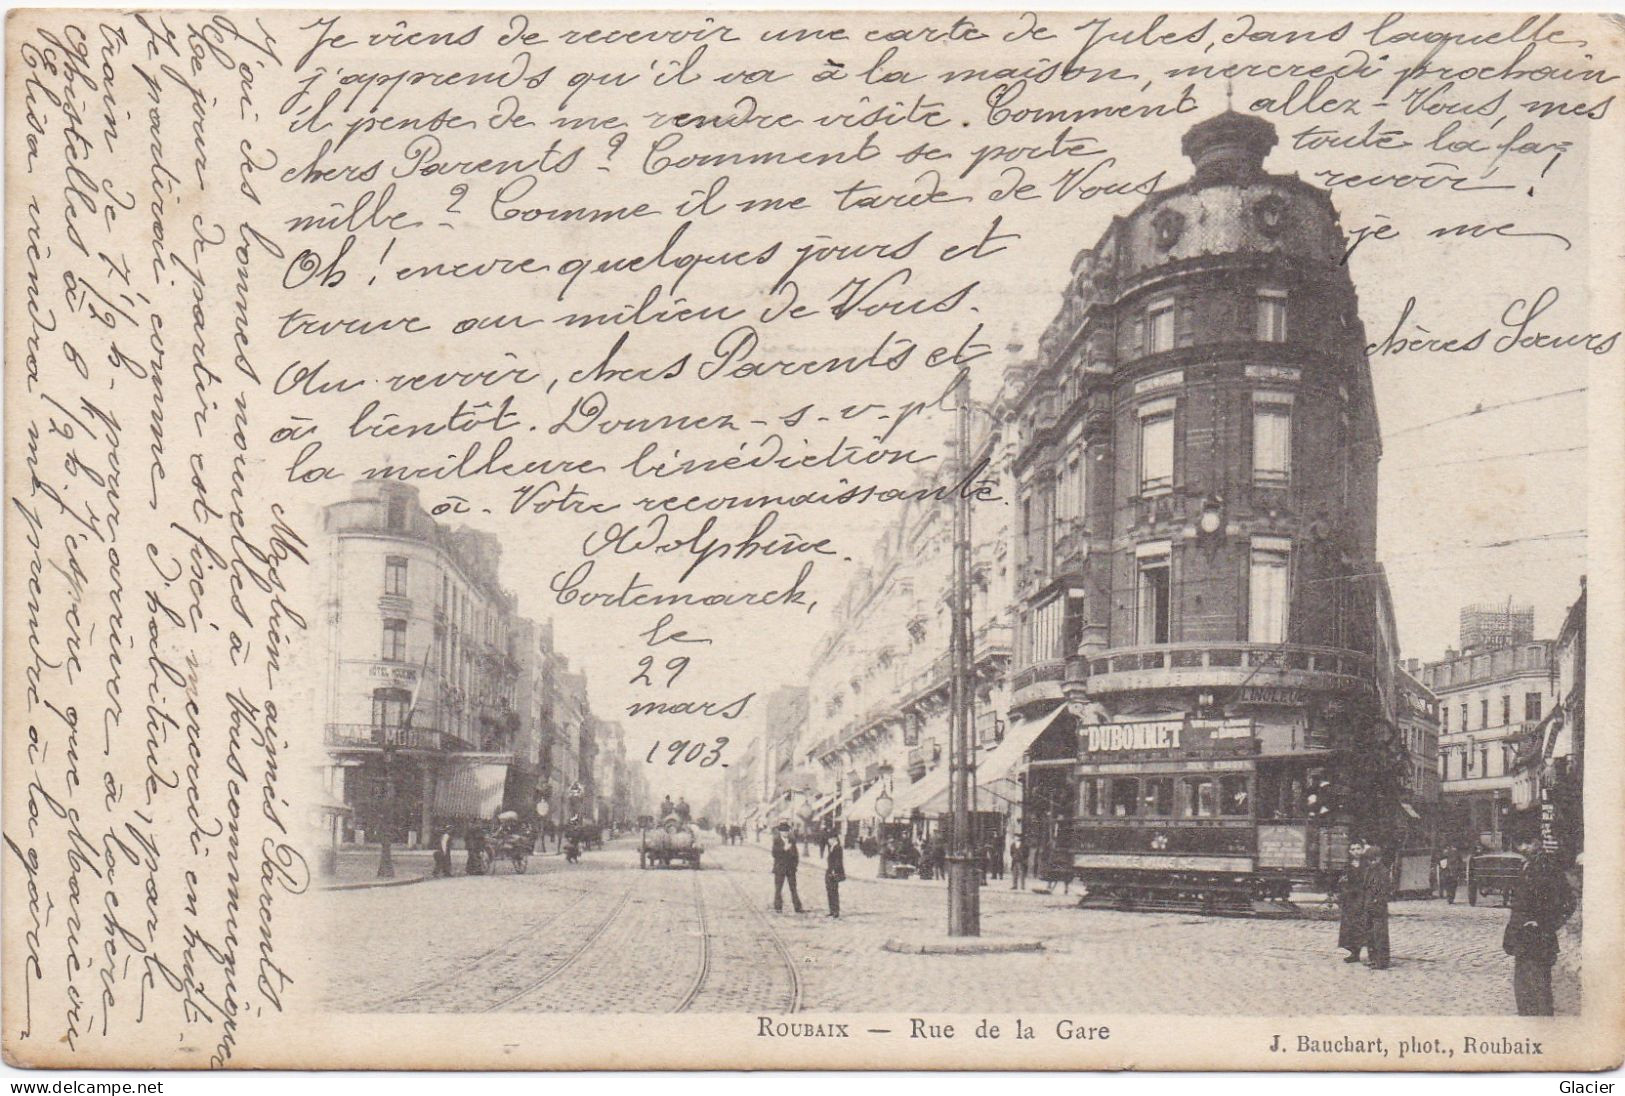 Mes bien aimés Parents.
J'ai des bonnes nouvelles à Vous communiquer
Le jour de partir est fixé mercredi en huit.
Je partirai, comme d'habitude, par le
train de 7 1/2 h. pour arriver à la chère
Ghistelles à 8 1/2 h. J'espère que Marie ou
Elisa viendra me prendre à la gare
Je viens de recevoir une carte de Jules, dans laquelle
j'apprends qu'il va à la maison, mercredi prochain
il pense de me rendre visite. Comment allez-Vous, mes
chers Parents? Comment se porte toute la fa-
mille? Comme il me tarde de Vous revoir!
Oh! encore quelques jours et je me
trouve au milieu de Vous.
Au revoir, chers Parents et chères Sœurs
à bientôt. Donnez-s-v-pl
la meilleure bénédiction
à. Votre reconnaissante
Adolphine.
Cortemarck,
le
29
mars
1903.
HÔTEL MODERNE
DUBONNET
LINOLEUM
Roubaix — Rue de la Gare
J. Bauchart, phot., Roubaix
Glacier